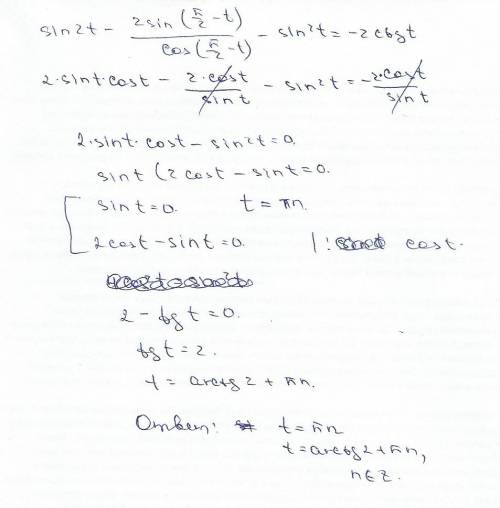 sin2t - 2sin(π/2 - t) / cos(π/2 - t) - sin²t = -2ctgt
2·sint·cost - 2·cost / sint - sin²t = -2·cost / sint
2·sint·cost - sin²t = 0.
sint (2cost - sint = 0.
[ sint = 0. t = πn.
2cost - sint = 0. |: cost.
2 - tg t = 0.
tg t = 2.
t = arctg 2 + πn.
Ответ: t = πn
t = arctg 2 + πn,
n ∈ Z.